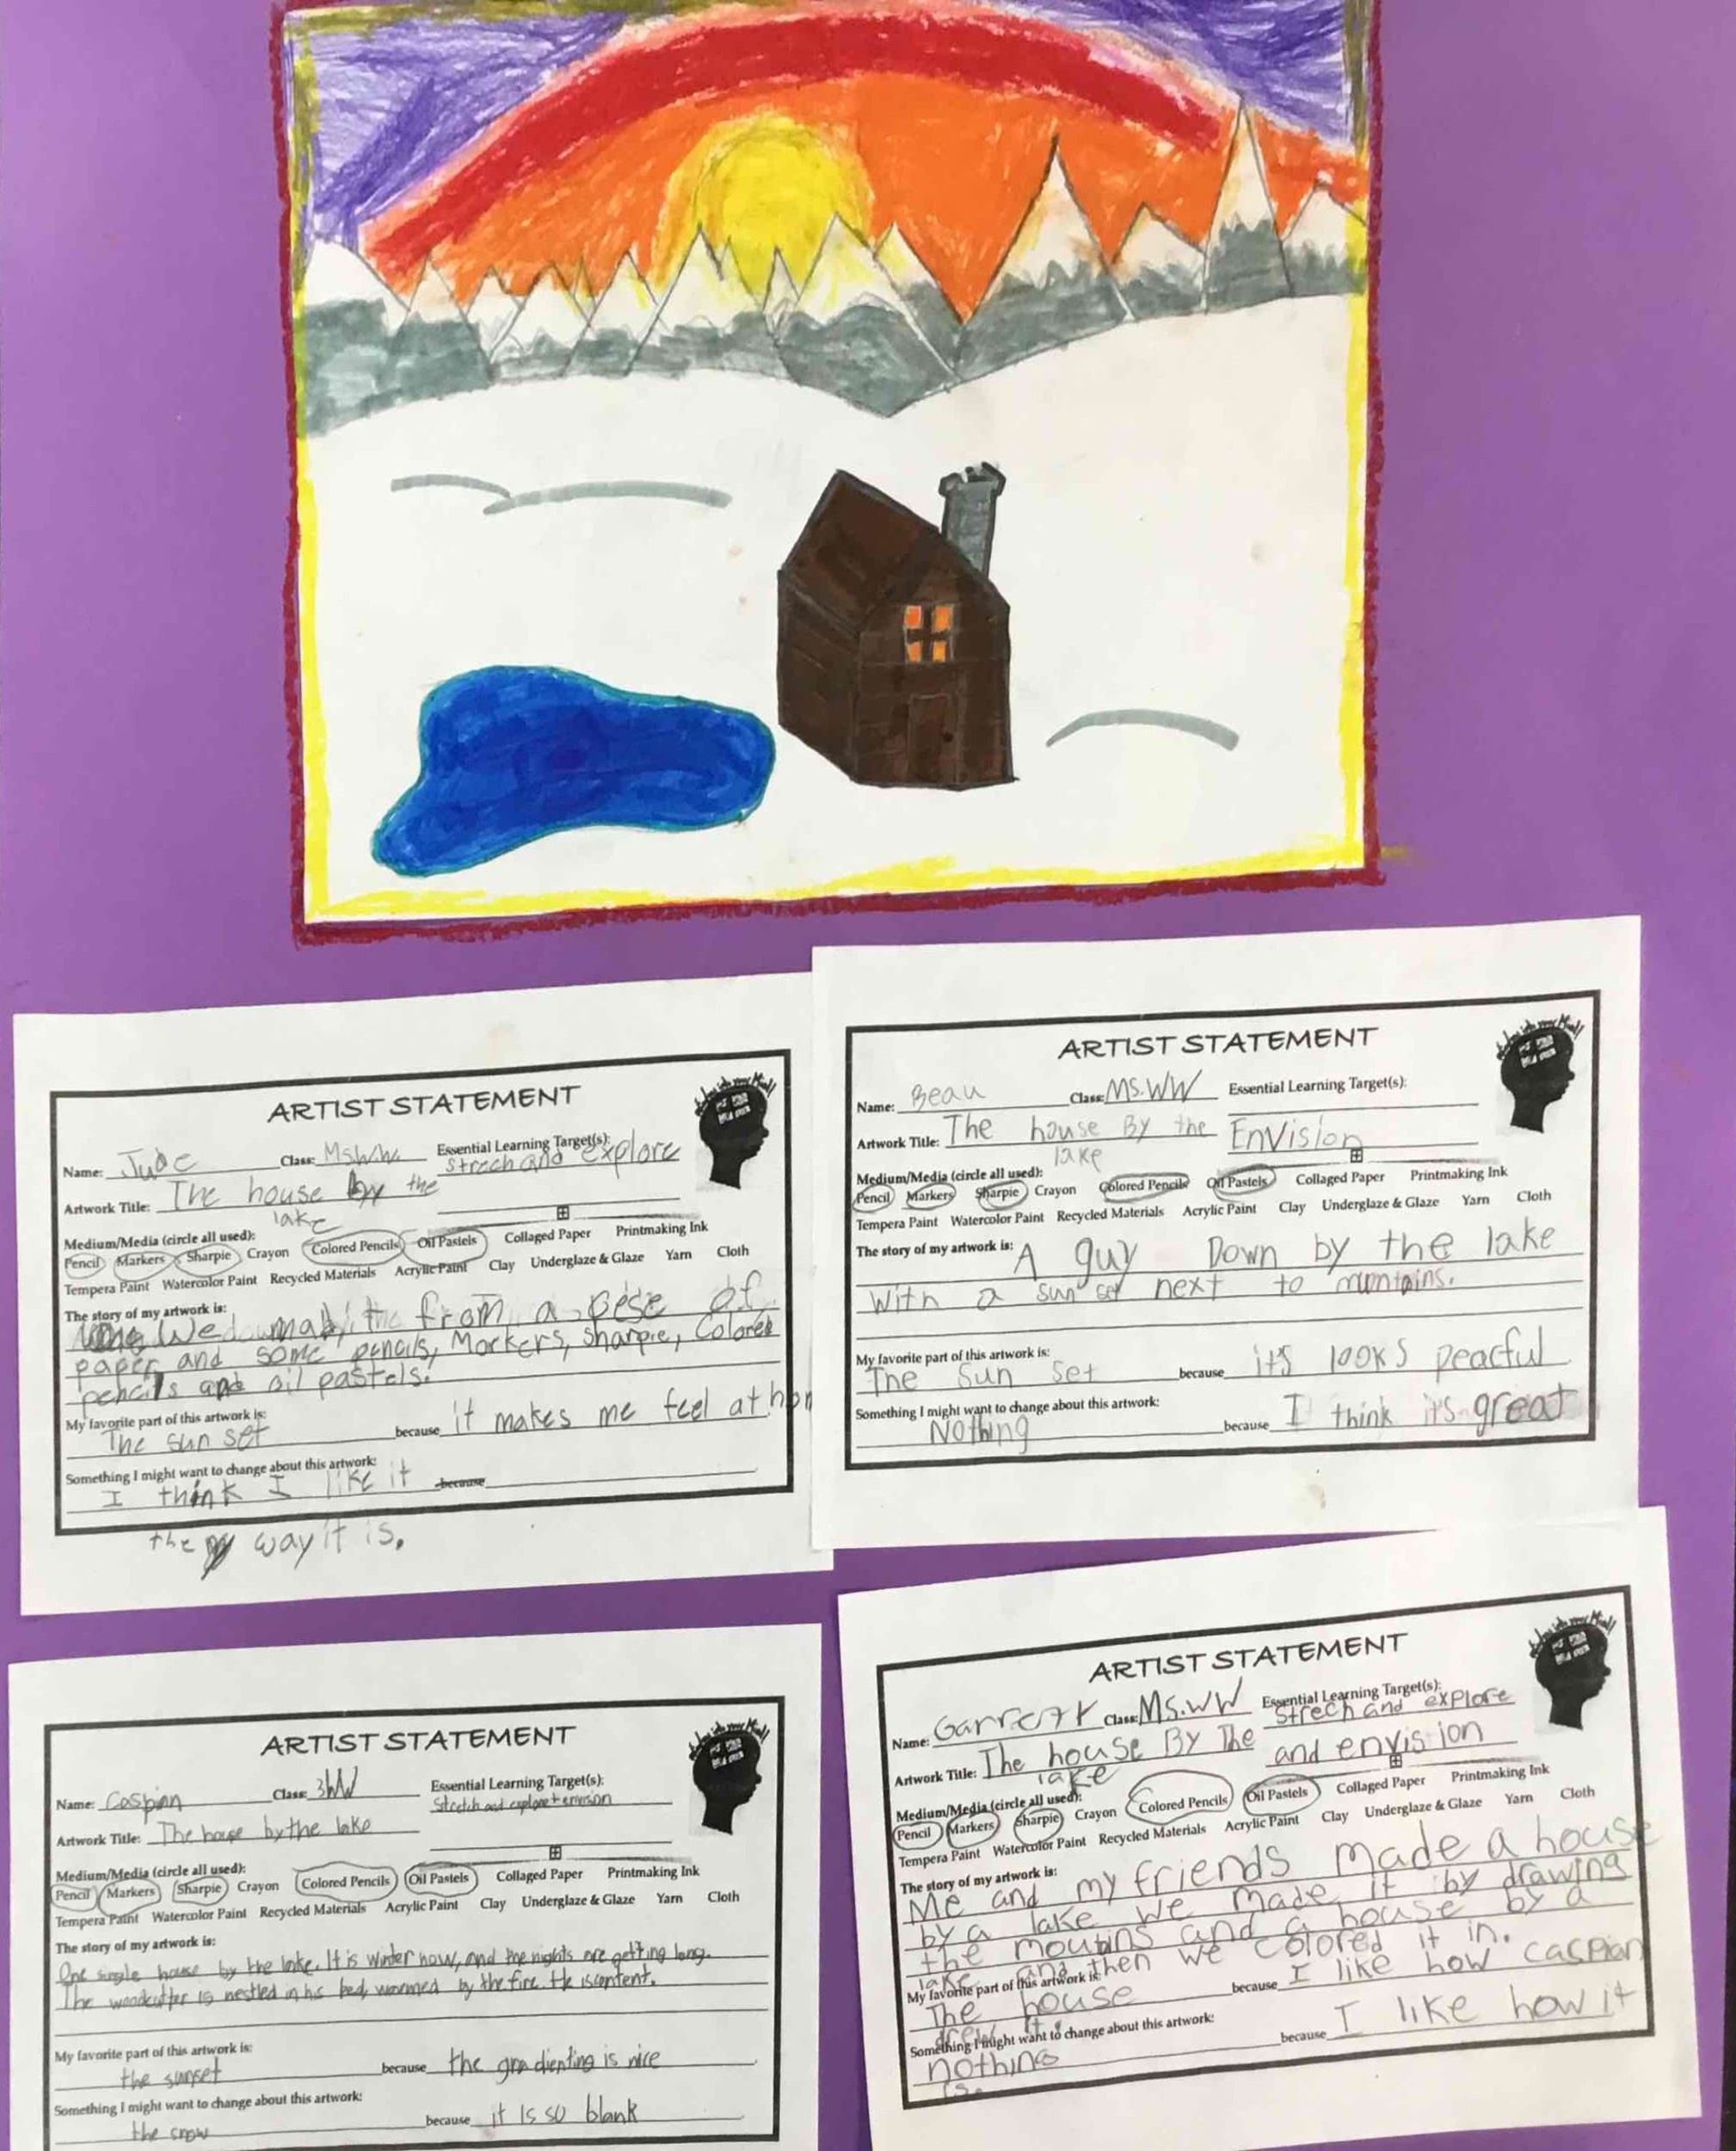 ARTIST STATEMENT
Name: Jude Class: MsWW. Essential Learning Target(s):
strech and explore
Artwork Title: The house by the
lake
Medium/Media (circle all used):
Pencil Markers Sharpie Crayon Colored Pencils Oil Pastels Collaged Paper Printmaking Ink
Tempera Paint Watercolor Paint Recycled Materials Acrylic Paint Clay Underglaze & Glaze Yarn Cloth
The story of my artwork is:
We from a pese of
paper and some pencils, Markers, Sharpie, Colored
pencils and oil pastels.
My favorite part of this artwork is:
The sun set because it makes me feel at hom
Something I might want to change about this artwork:
I think I like it because
the way it is.
ARTIST STATEMENT
Name: Beau Class: MS.WW Essential Learning Target(s):
Artwork Title: The house By the Envision
lake
Medium/Media (circle all used):
Pencil Markers Sharpie Crayon Colored Pencils Oil Pastels Collaged Paper Printmaking Ink
Tempera Paint Watercolor Paint Recycled Materials Acrylic Paint Clay Underglaze & Glaze Yarn Cloth
The story of my artwork is: A guy Down by the lake
with a sun set next to
My favorite part of this artwork is:
The Sun set because it's looks peacful
Something I might want to change about this artwork:
Nothing because I think it's great
ARTIST STATEMENT
Name: Caspian Class: 3WW Essential Learning Target(s):
Stretch and explore + envision
Artwork Title: The house by the lake
Medium/Media (circle all used):
Pencil Markers Sharpie Crayon Colored Pencils Oil Pastels Collaged Paper Printmaking Ink
Tempera Paint Watercolor Paint Recycled Materials Acrylic Paint Clay Underglaze & Glaze Yarn Cloth
The story of my artwork is:
One single house by the lake. It is winter now, and the nights are getting long.
The woodcutter is nestled in his bed, warmed by the fire. He is content.
My favorite part of this artwork is:
the sunset because the gradienting is nice
Something I might want to change about this artwork:
the snow because it is so blank
ARTIST STATEMENT
Name: Garrett Class: MS.WW Essential Learning Target(s):
Strech and explore
Artwork Title: The house By The and envision
lake
Medium/Media (circle all used):
Pencil Markers Sharpie Crayon Colored Pencils Oil Pastels Collaged Paper Printmaking Ink
Tempera Paint Watercolor Paint Recycled Materials Acrylic Paint Clay Underglaze & Glaze Yarn Cloth
The story of my artwork is:
Me and my friends made a house
by a lake we made it by drawing
the moutins and a house by a
lake and then we colored it in.
My favorite part of this artwork is:
The house because I like how caspian
drew it.
Something I might want to change about this artwork:
nothing because I like how it
is.